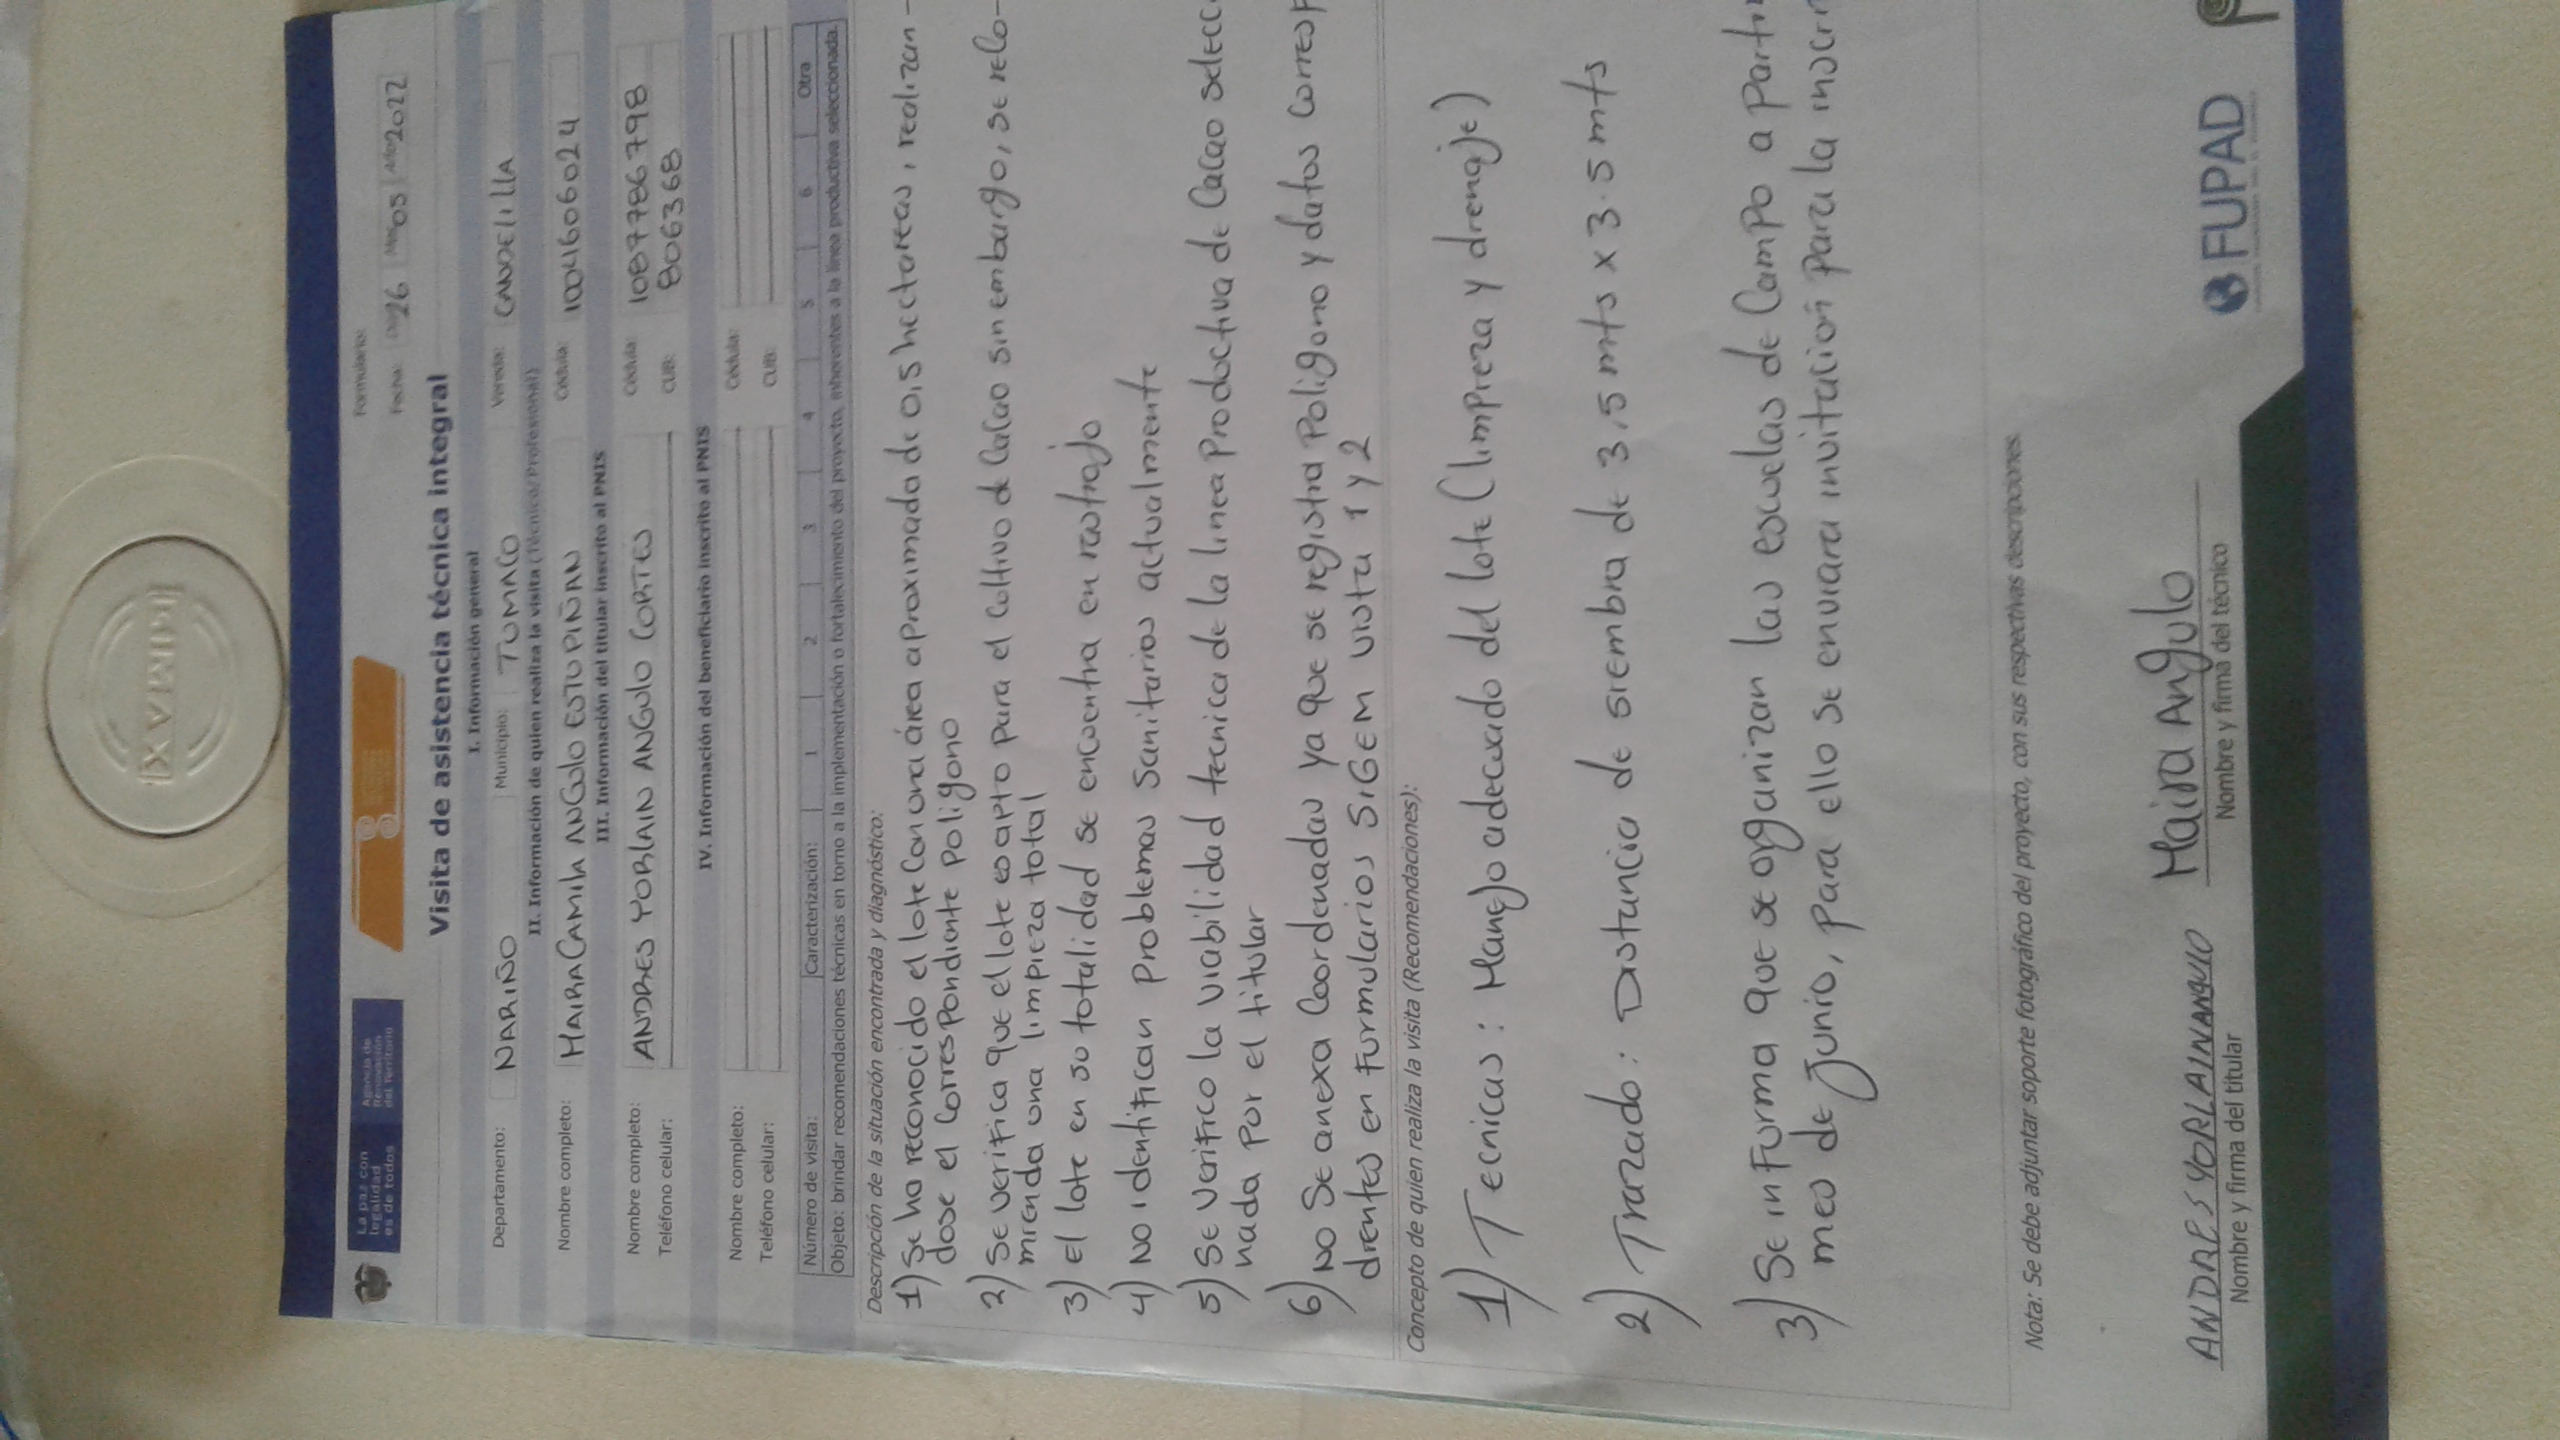 La paz con
legalidad
es de todos
Agencia de
Renovación
del Territorio
Formulario:
Fecha: 26 Mes 05 Año 2022
Visita de asistencia técnica integral
I. Información general
Departamento: NARIÑO Municipio: TUMACO Vereda: CANDELILLA
II. Información de quien realiza la visita (Técnico/Profesional)
Nombre completo: MAIRA CAMILA ANGULO ESTUPIÑAN Cédula: 1004606024
III. Información del titular inscrito al PNIS
Nombre completo: ANDRES YORLAIN ANGULO CORTES Cédula: 1087786798
Teléfono celular: CUB: 806368
IV. Información del beneficiario inscrito al PNIS
Nombre completo: Cédula:
Teléfono celular: CUB:
Número de visita: Caracterización: 1 2 3 4 5 6 Otra
Objeto: brindar recomendaciones técnicas en torno a la implementación o fortalecimiento del proyecto, inherentes a la línea productiva seleccionada.
Descripción de la situación encontrada y diagnóstico:
1) Se ha reconocido el lote con una área aproximada de 0,5 hectareas, realizan-
dose el correspondiente poligono
2) Se verifica que el lote es apto para el cultivo de cacao sin embargo, se reco-
mienda una limpieza total
3) el lote en su totalidad se encuentra en rastrojo
4) No identifican problemas sanitarios actualmente
5) Se verifico la viabilidad tecnica de la linea productiva de cacao selecc
nada por el titular
6) No se anexa coordenadas ya que se registra poligono y datos corresp
dientes en formularios SIGEM visita 1 y 2
Concepto de quien realiza la visita (Recomendaciones):
1) Tecnicas: Manejo adecuado del lote (limpieza y drenaje)
2) Trazado: Distancia de siembra de 3,5 mts x 3.5 mts
3) Se informa que se organizan las escuelas de campo a partir
mes de junio, para ello se enviara invitación para la inscri
Nota: Se debe adjuntar soporte fotográfico del proyecto, con sus respectivas descripciones.
ANDRES YORLAIN ANGULO Maira Angulo
Nombre y firma del titular Nombre y firma del técnico
FUPAD